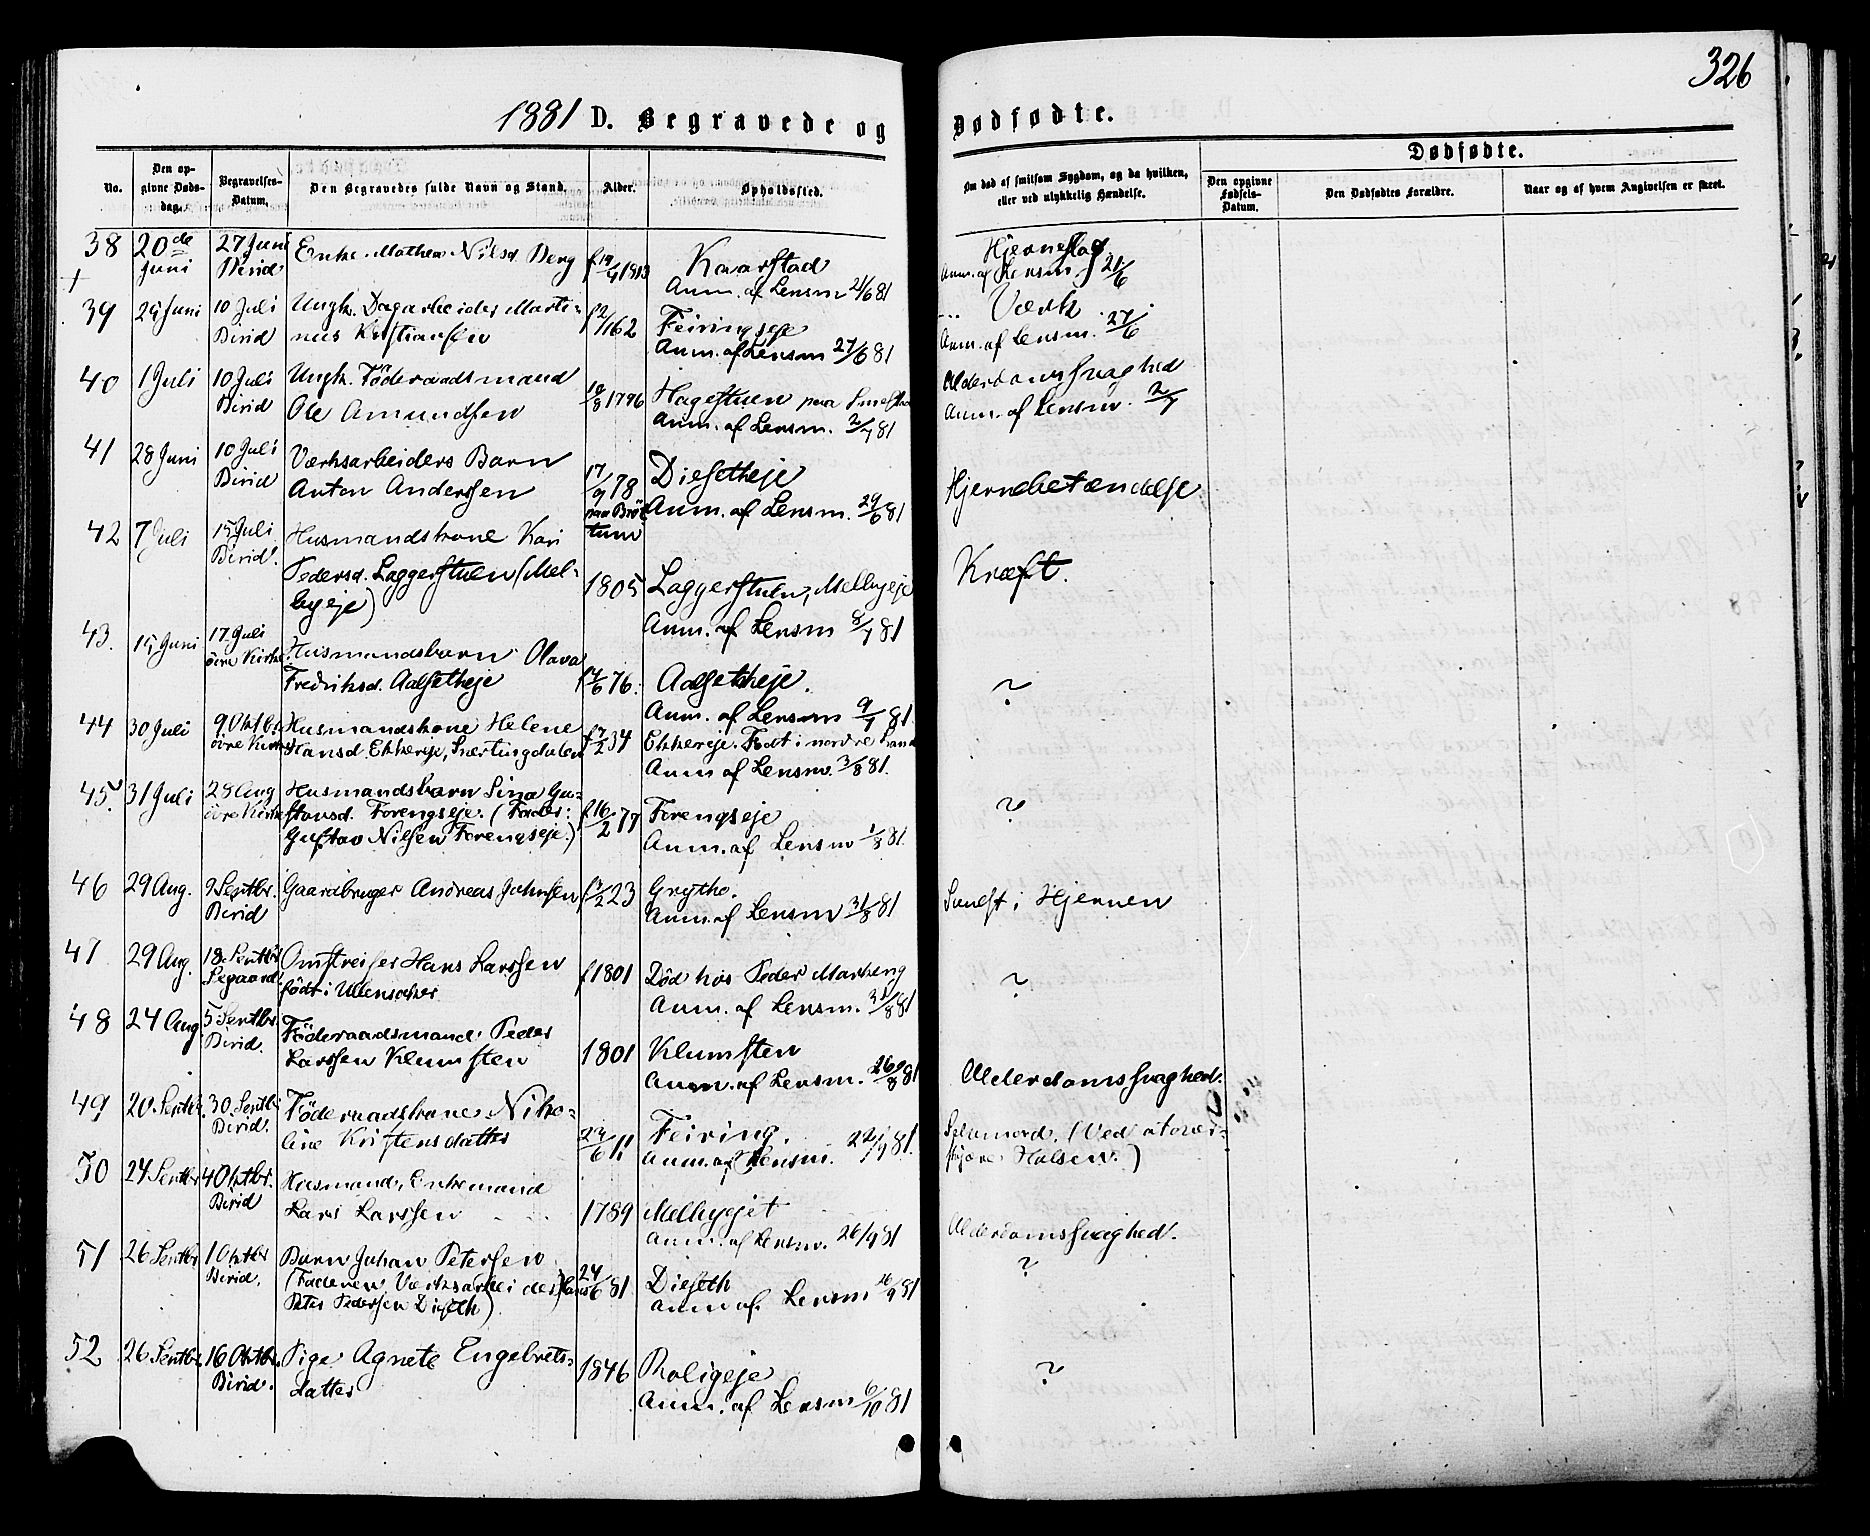 326
1881 D. Begravede og Dødfødte.
No.
Den op-
givne Døds-
dag.
Begravelses-
Datum.
Den Begravedes fulde Navn og Stand.
Alder.
Opholdssted.
Om død af smitsom Sygdom, og da hvilken,
eller ved ulykkelig Hændelse.
Dødfødte.
Den opgivne
Fødsels-
Datum.
Den Dødfødtes Forældre.
Naar og af hvem Angivelsen er skeet.
38
20de
Juni
27 Juni
Birid
Enke Mathea Nilsd Berg
f 19/4 1813
Kvarstad
Anm. af Lensm 21/6 81
Hjerneslag
Anm. af Lensm 21/6
39
29 Juni
10 Juli
Birid
Ungk. Dagarbeider Marti-
nus Kristiansen
62
Feiringseje
Anm. af Lensm 27/6 81
Værk
Anm. af Lensm. 27/6
40
1 Juli
10 Juli
Birid
Ungk. Föderaadsmand
Ole Amundsen
10/8 1796
Hagestuen paa
Anm. af Lensm. 2/7 81
Alderdomssvaghed
Anm. af Lensm. 2/7
41
28 Juni
10 Juli
Birid
Værksarbeiders Barn
Anton Anderssen
17/9 78
paa Bröt
tum
Diesetheje
Anm. af Lensm. 29/6 81
Hjernebetændelse
42
7 Juli
15 Juli
Birid.
Husmandskone Kari
Pedersd. Laggerstuen (Mel-
byeje)
1805
Laggerstuen, Melbyeje
Anm. af Lensm 8/7 81
Kræft.
43.
15 Juni
17 Juli
övre Kirke
Husmandsbarn Olava
Fredriksd. Aalsetheje
76.
Aalsetheje.
Anm. af Lensm 9/7 81.
?
44
30 Juli
9 Oktb.
övre Kirke
Husmandskone Helene
Hansd. Ekkereje, Snertingdalen
f 7/2 34
Ekkereje. Födt i nordre Land
Anm af Lensm. 3/8 81.
45.
31 Juli
28 Aug
övre Kirke
Husmandsbarn Sina Gu-
stavsd. Forengseje. (Fader:
Gustav Nilsen Forengseje.)
f 16/2 77
Forengseje
Anm. af Lensm 1/8 81.
?
46
29 Aug.
9 Septbr.
Birid
Gaardbruger Andreas Johnsen
23
Grythe.
Anm. af Lensm 31/8 81
i Hjernen
47
29 Aug.
18 Septbr
Segaard
Omstreifer Hans Larssen
födt i Ullensaker
f 1801
Död hos Peder Markeng
Anm. af Lensm. 31/8 81
?
48
24 Aug
5 Septbr.
Birid.
Föderaadsmand Peder
Larssen Klumsten
1801
Klumsten
Anm. af Lensm. 26/8 81
Alderdomssvaghed.
49
20 Septbr.
30 Septbr
Birid.
Föderaadskone Niko-
line Kristensdatter
11
Feiring.
Anm. af Lensm. 22/9 81.
Selvmord. (Ved at over-
skjære Halsen.)
50
24 Septbr
4 Oktbr.
Birid
Husmand, Enkemand
Lars Larssen
1789
Melbyejet
Anm. af Lensm. 26/9 81
Alderdomssvaghed.
51
26 Septbr
1 Oktbr
Birid.
Barn Johan Petersen
(Faderen Værksarbeider
Peter Pedersen Dieseth)
24/6 81
Dieseth
Anm af Lensm 26/9 81
?
52
26 Septbr.
16 Oktbr.
Birid.
Pige Agnete Engebrets-
datter
1846
Roligeje
Anm. af Lensm 6/10 81
?